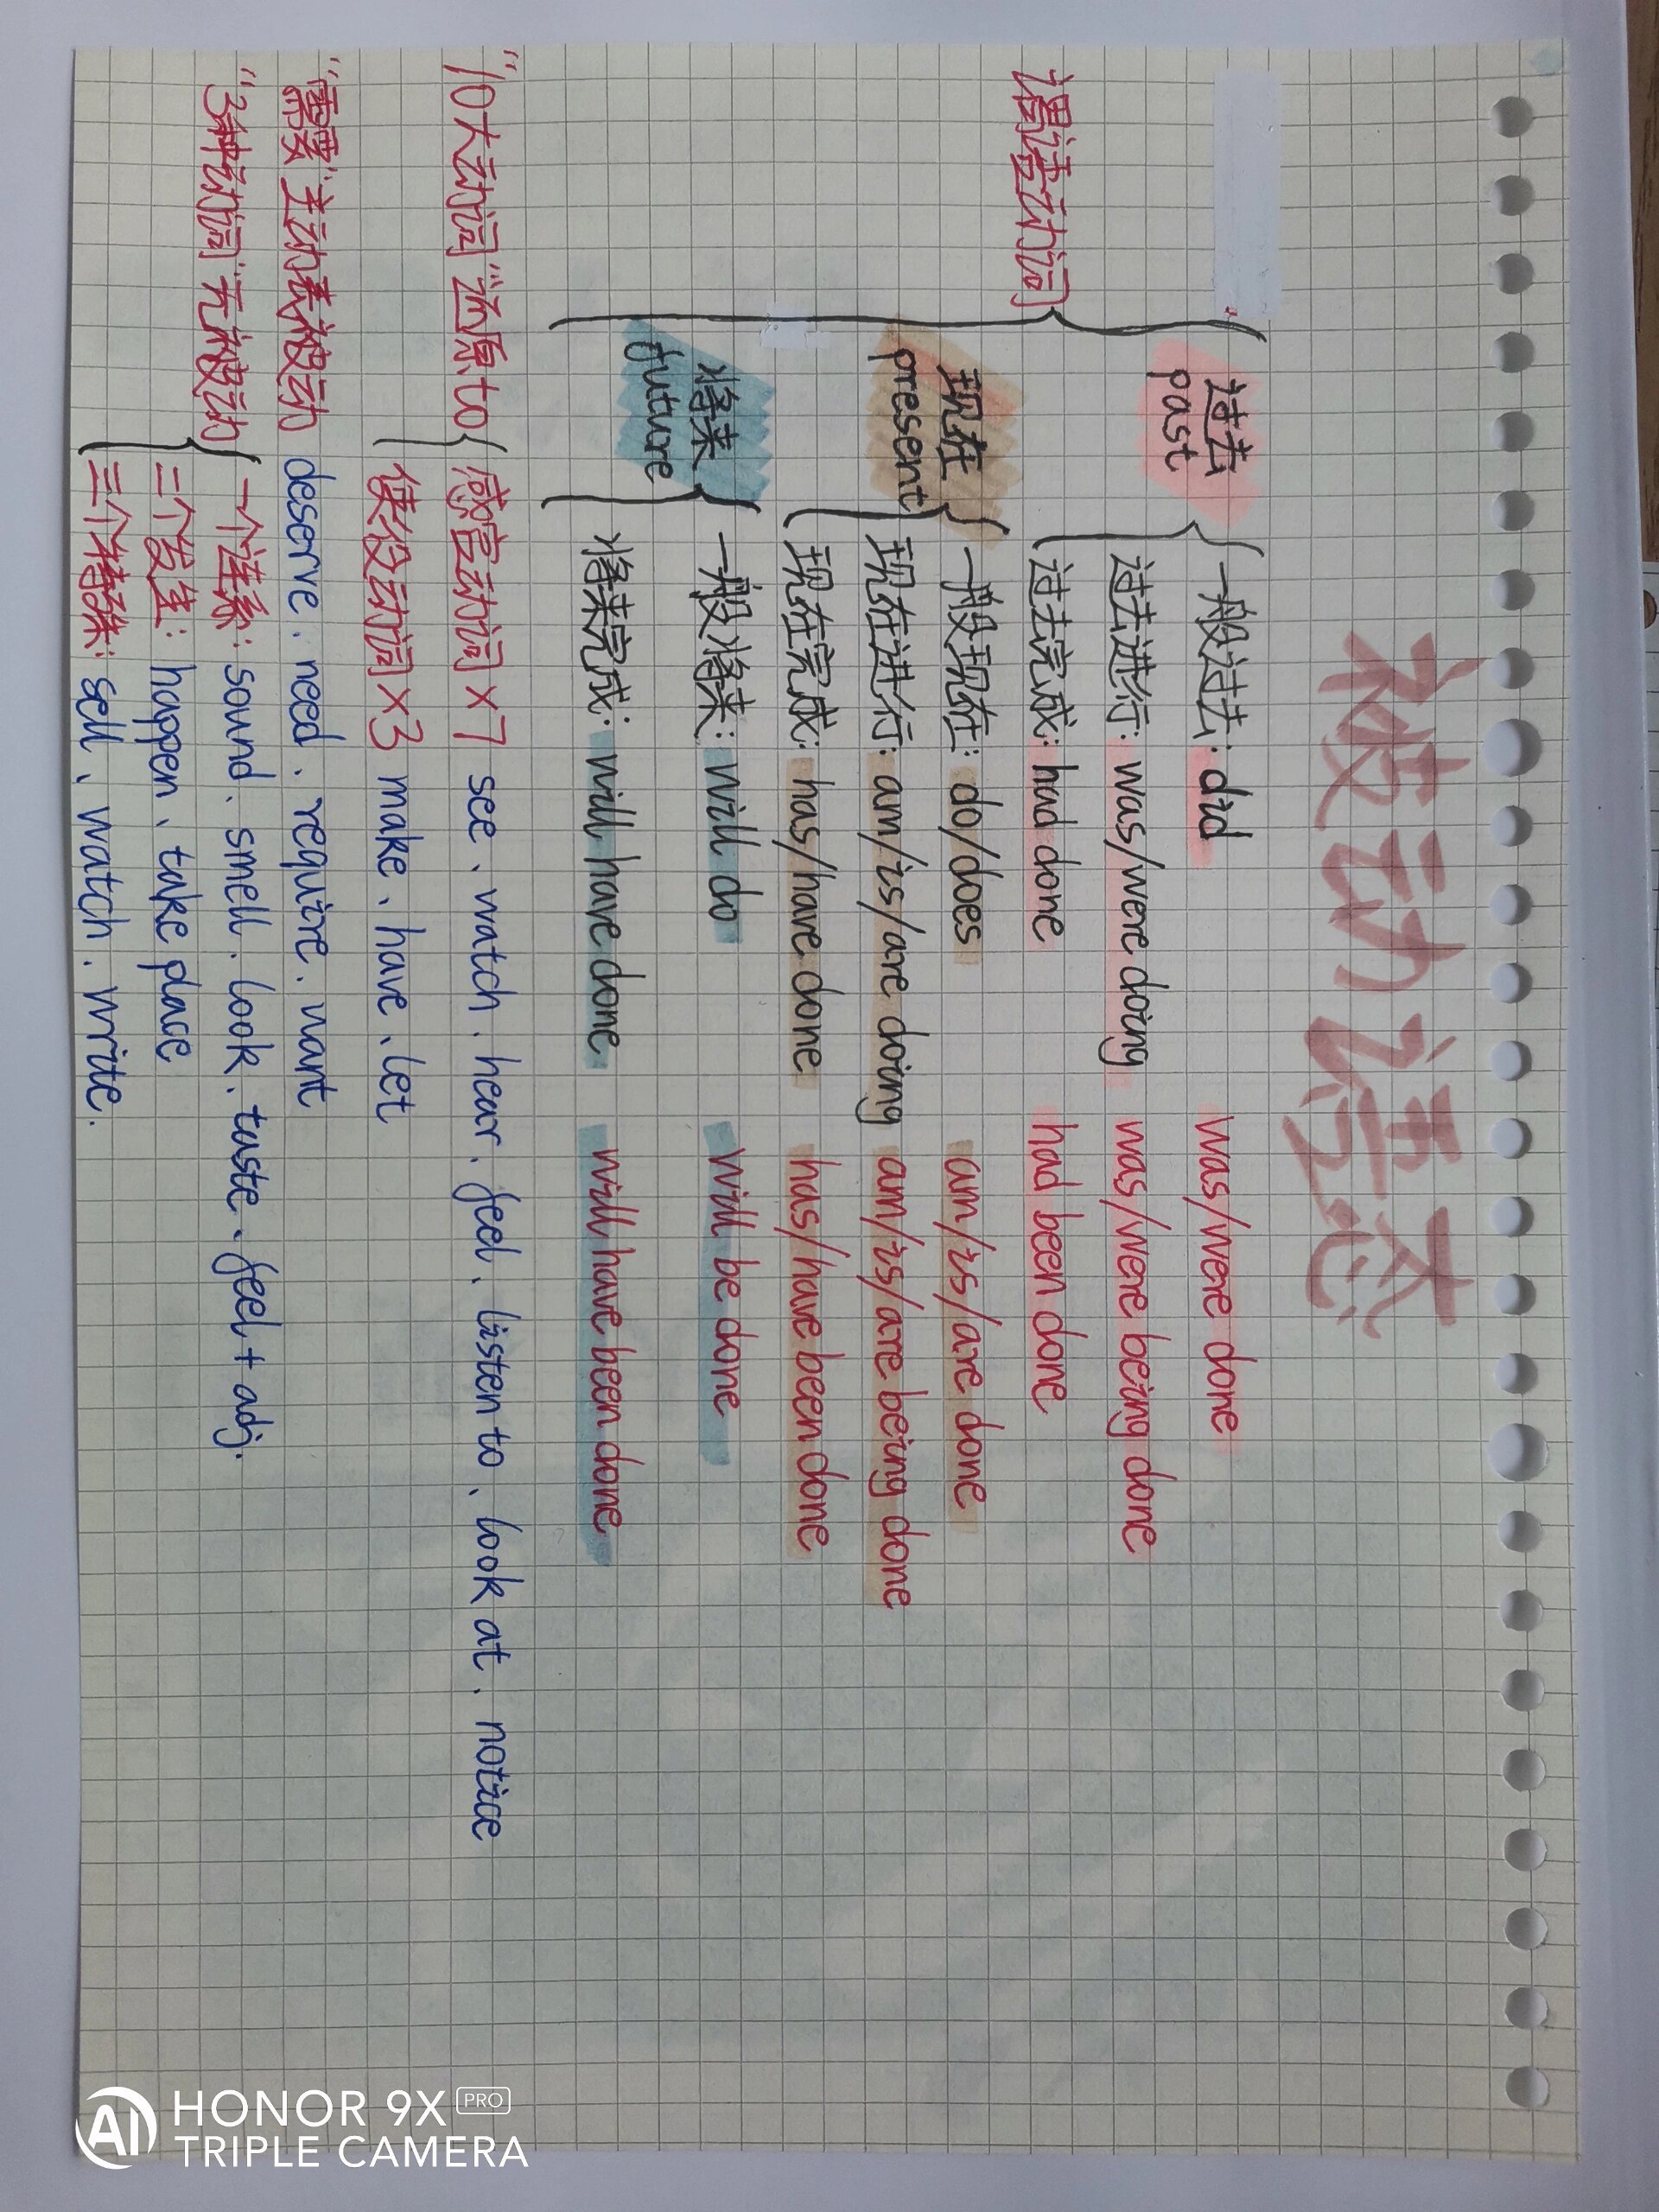 被动语态
过去 一般过去: did was/were done
past 过去进行: was/were doing was/were being done
谓语动词 过去完成: had done had been done
现在 一般现在: do/does am/is/are done
present 现在进行: am/is/are doing am/is/are being done
现在完成: has/have done has/have been done
将来 一般将来: will do will be done
future 将来完成: will have done will have been done
"10大动词"还原to 感官动词×7 see、watch、hear、feel、listen to、look at、notice
使役动词×3 make、have、let
"需要"主动表被动 deserve、need、require、want
"3种动词"无被动 一个连系: sound、smell、look、taste、feel + adj.
二个发生: happen、take place
三个特殊: sell、watch、write.
HONOR 9X PRO
TRIPLE CAMERA
AI